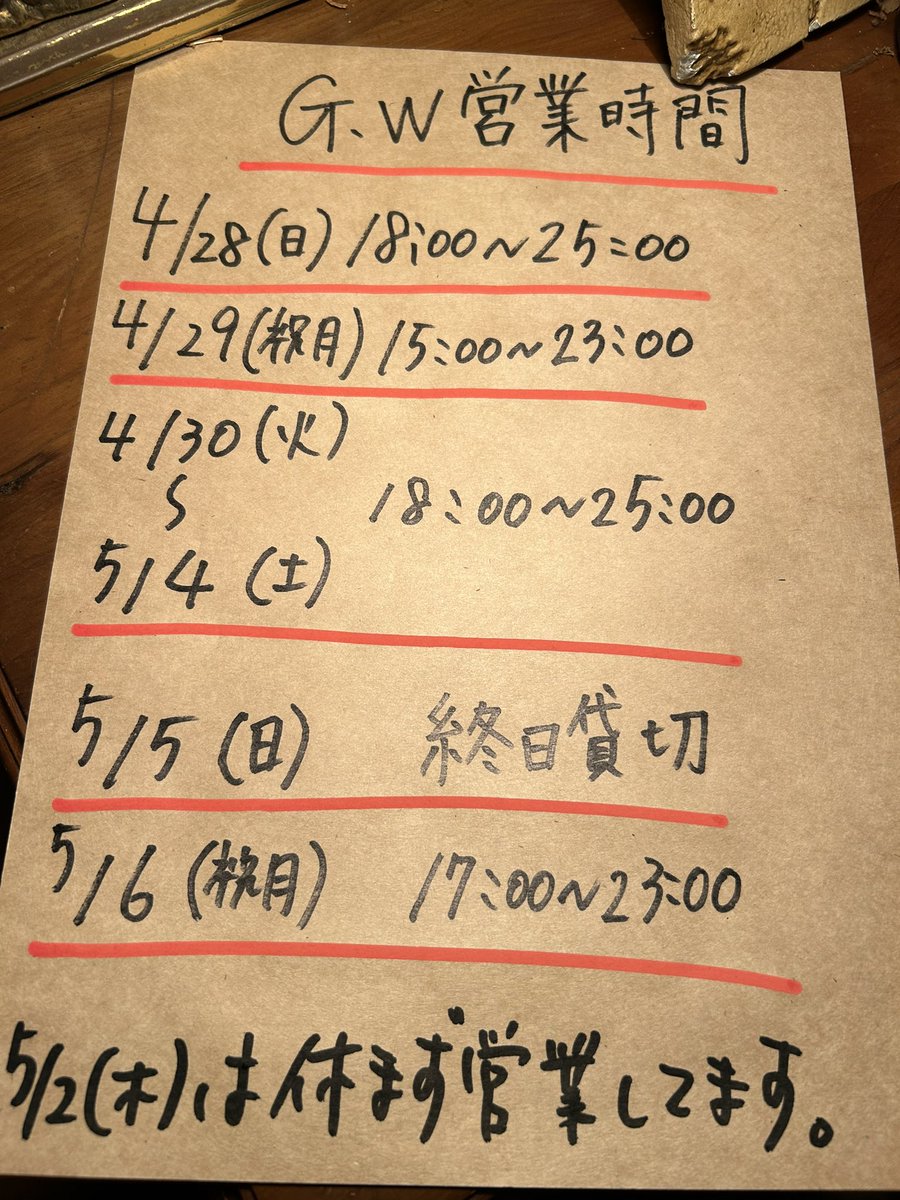 G.W営業時間
4/28(日) 18:00~25:00
4/29(祝月) 15:00~23:00
4/30(火)
〜 18:00~25:00
5/4 (土)
5/5 (日) 終日貸切
5/6 (祝月) 17:00~23:00
5/2(木)は休まず営業してます。